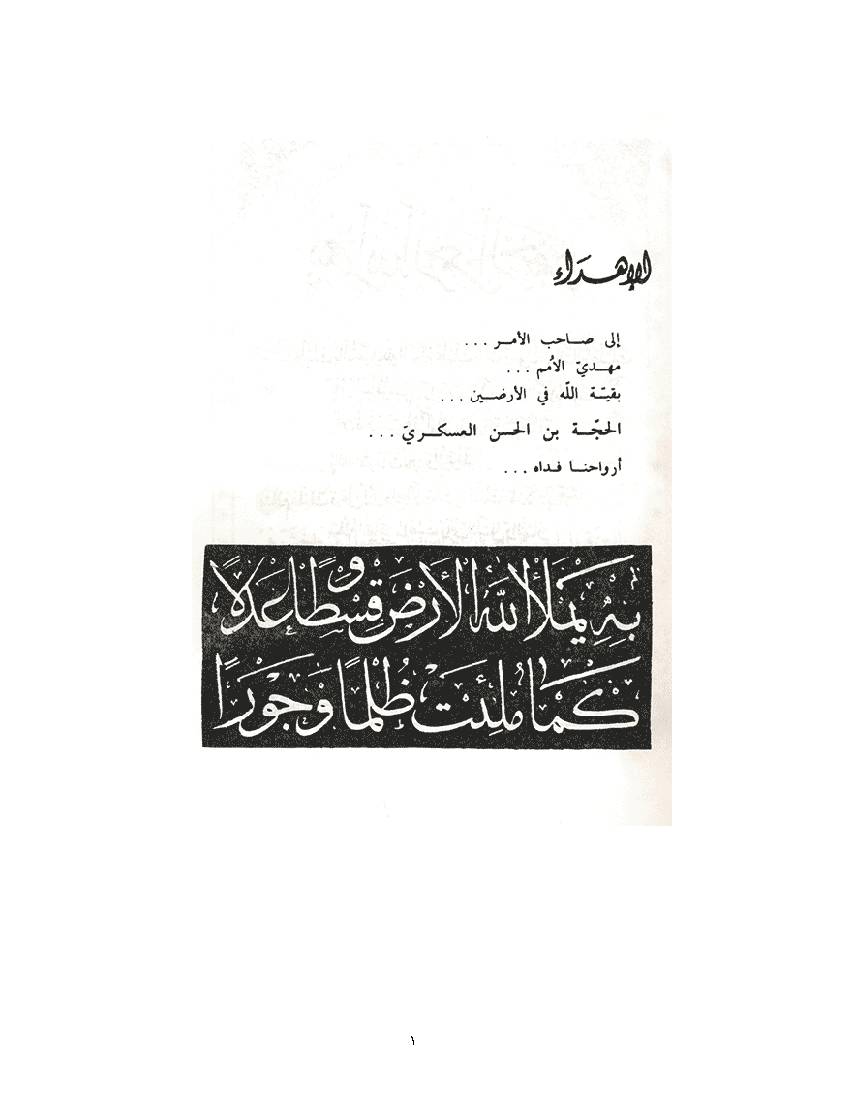 الإهداء
إلى صاحب الأمر ...
مهديّ الأمم ...
بقيّة اللّه في الأرضين ...
الحجّة بن الحسن العسكريّ ...
أرواحنا فداه ...
بِهِ يَمْلَأُ اللهُ الأَرْضَ قِسْطًا وَعَدْلًا
كَمَا مُلِئَتْ ظُلْمًا وَجَوْرًا
١